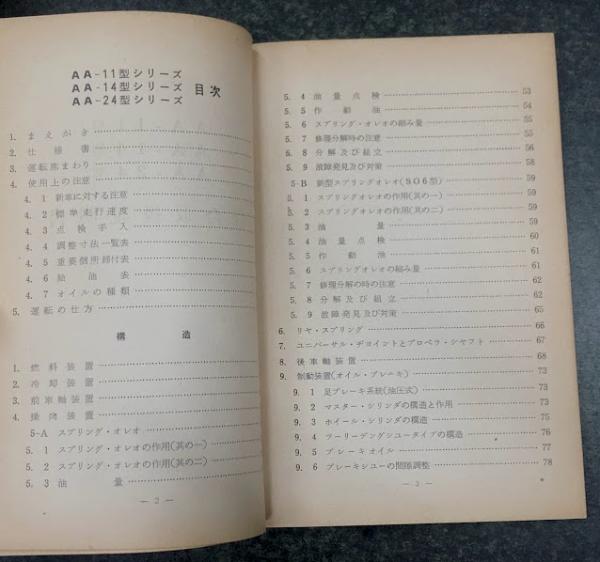 AA-11型シリーズ
AA-14型シリーズ 目次
AA-24型シリーズ
1. まえがき
2. 仕様書
3. 運転席まわり
4. 使用上の注意
4. 1 新車に対する注意
4. 2 標準走行速度
4. 3 点検手入
4. 4 調整寸法一覧表
4. 5 重要個所締付表
4. 6 給油表
4. 7 オイルの種類
5. 運転の仕方
構造
1. 燃料装置
2. 冷却装置
3. 前車軸装置
4. 操向装置
5-A スプリング・オレオ
5. 1 スプリング・オレオの作用(其の一)
5. 2 スプリング・オレオの作用(其の二)
5. 3 油量
— 2 —
5. 4 油量点検 53
5. 5 作動油 54
5. 6 スプリング・オレオの縮み量 55
5. 7 修理分解時の注意 55
5. 8 分解及び組立 56
5. 9 故障発見及び対策 58
5-B 新型スプリングオレオ(SO6型) 59
5. 1 スプリングオレオの作用(其の一) 59
5. 2 スプリングオレオの作用(其の二) 59
5. 3 油量 60
5. 4 油量点検 60
5. 5 作動油 61
5. 6 スプリングオレオの縮み量 61
5. 7 修理分解の時の注意 61
5. 8 分解及び組立 62
5. 9 故障発見及び対策 65
6. リヤ・スプリング 66
7. ユニバーサル・ヂョイントとプロペラ・シャフト 67
8. 後車軸装置 68
9. 制動装置(オイル・ブレーキ) 73
9. 1 足ブレーキ系統(油圧式) 73
9. 2 マスター・シリンダの構造と作用 73
9. 3 ホイール・シリンダの構造 75
9. 4 ツーリーデングシュータイプの構造 76
9. 5 ブレーキオイル 77
9. 6 ブレーキシューの間隙調整 78
— 3 —